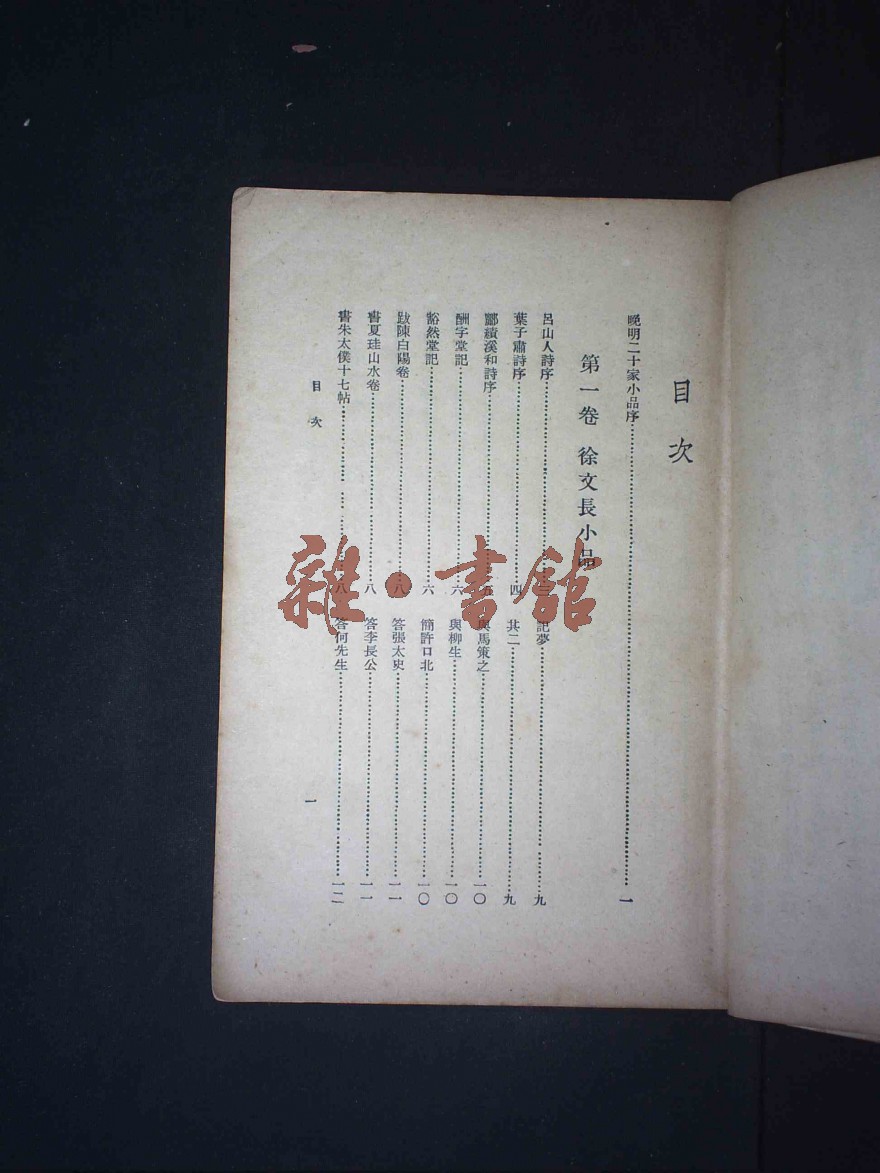 目次
晚明二十家小品序……一
第一卷 徐文長小品
呂山人詩序……三 記夢……九
葉子肅詩序……四 其二……九
酈績溪和詩序……五 與馬策之……一〇
酬字堂記……六 與柳生……一〇
豁然堂記……六 簡許口北……一〇
跋陳白陽卷……八 答張太史……一一
書夏珪山水卷……八 答李長公……一一
書朱太僕十七帖……八 答何先生……一二
目次
一
雜·書館